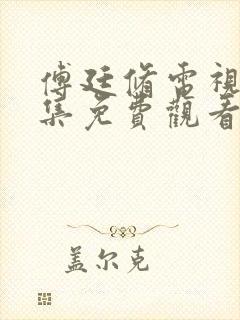 傅廷脩電視
集免費觀看
盖尔克